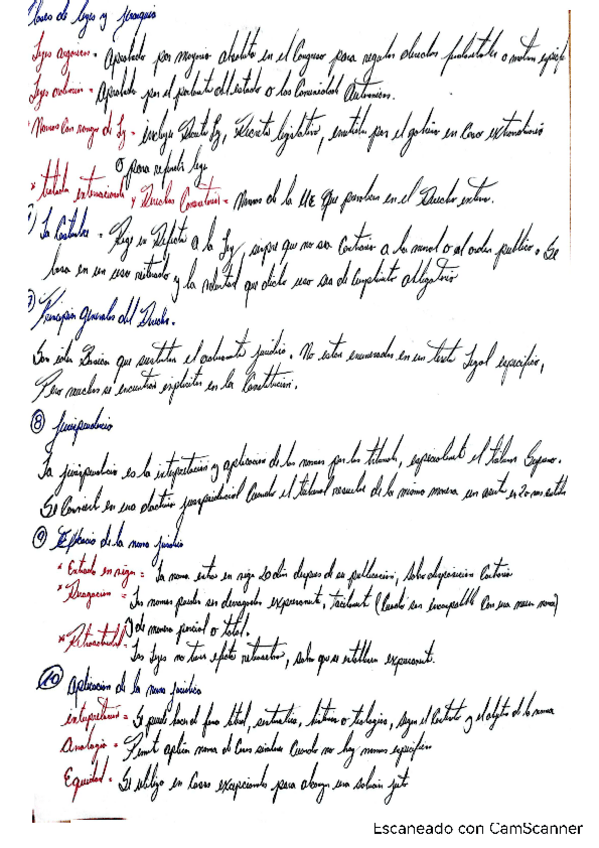 Clases de leyes y jerarquía
Leyes orgánicas = Aprobadas por mayoría absoluta en el Congreso para regular derechos fundamentales o materias
Leyes ordinarias = Aprobadas por el parlamento del estado o las Comunidad Autónomas.
Normas Con rango de Ley = incluye Decreto Ley, Decreto legislativo, por el gobierno en Caso extraordinario
O para refundir leyes
* tratados internacionales y Derecho Comunitario = Normas de la UE que prevalecen en el Derecho interno.
La Costumbre = Rige en Defecto a la Ley, siempre que no sea Contraria a la moral o al orden publico. Se
basa en un uso reiterado y la voluntad que dicho uso sea de Cumplimiento obligatorio
Principios Generales del Derecho.
Son ideas Básicas que sustentan el ordenamiento jurídico. No estan enumerados en un texto Legal especifico,
Pero muchos se encuentran explicitos en la Constitucion.
⑧ Jurisprudencia
La jurisprudencia es la interpretación y aplicacion de las normas por los tribunales, especialmente el tribunal Supremo.
Se Convierte en una doctrina jurisprudencial Cuando el tribunal resuelve de la misma manera un asunto en 2 o mas
⑨ Eficacia de la norma jurídica
* Entrada en vigor = La norma entra en vigor 20 dias despues de su publicacion, salvo disposicion Contraria
* Derogacion = Las normas pueden ser derogadas expresamente, tacitamente (Cuando son incompatible Con una nueva norma)
y de manera parcial o total.
* Retroactividad = Las Leyes no tienen efecto retroactivo, salvo que se establezca expresamente.
⑩ Aplicacion de la norma jurídica
interpretacion = Se puede hacer de forma literal, sistematica, historica o teologica, segun el Contexto y el objeto de la norma
Analogia = Permite aplicar norma de Casos similares Cuando no hay normas especificas
Equidad = Se utiliza en Casos excepcionales para alcanzar una solucion justa
Escaneado con CamScanner